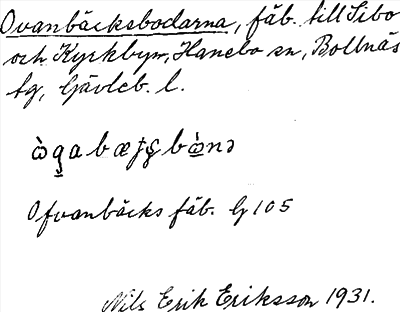 Ovanbäcksbodarna, fäb. till Sibo
och Kyrkbyn, Hanebo sn, Bollnäs
tg, Gävleb. l.
Ofvanbäcks fäb. G 105
Nils Erik Eriksson 1931.